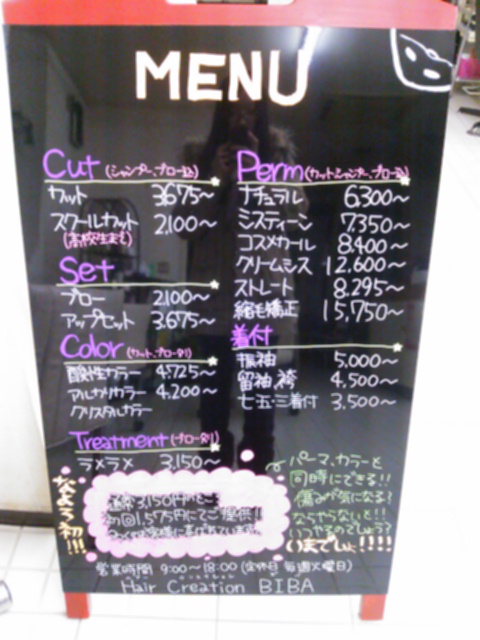 MENU
Cut (シャンプー、ブロー込)
カット 3.675〜
スクールカット 2,100〜
(高校生まで)
Set
ブロー 2.100〜
アップセット 3.675〜
Color (カット、ブロー別)
酸性カラー 4.725〜
アルカリカラー 4.200〜
クリスタルカラー
Treatment (ブロー別)
ラメラメ 3,150〜
Perm (カット、シャンプー、ブロー込)
ナチュラル 6,300〜
ミスティーン 7,350〜
コスメカール 8,400〜
クリームシス 12,600〜
ストレート 8,295〜
縮毛矯正 15,750〜
着付
振袖 5,000〜
留袖、袴 4,500〜
七五・三着付 3,500〜
なよろ初!!!
通常3,150円
初回1,575円にてご提供!!
パーマ、カラーと
同時にできる!!
傷みが気になる?
ならやらないと!!
いつやるのでしょう?
いまでしょ!!!!
営業時間 9:00〜18:00 (定休日 毎週火曜日)
Hair Creation BIBA